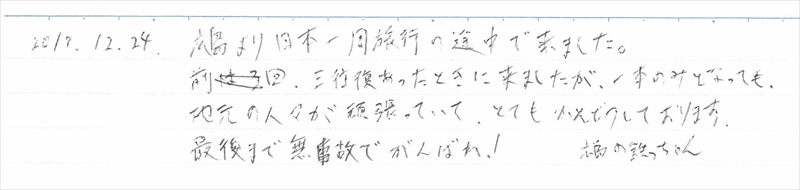 2017.12.24. 広島より日本一周旅行の途中で来ました。
前回、三往復あったときに来ましたが、一本のみとなっても、
地元の人々が頑張っていて、とてもかんどうしております。
最後まで無事故でがんばれ!
広島の鉄っちゃん